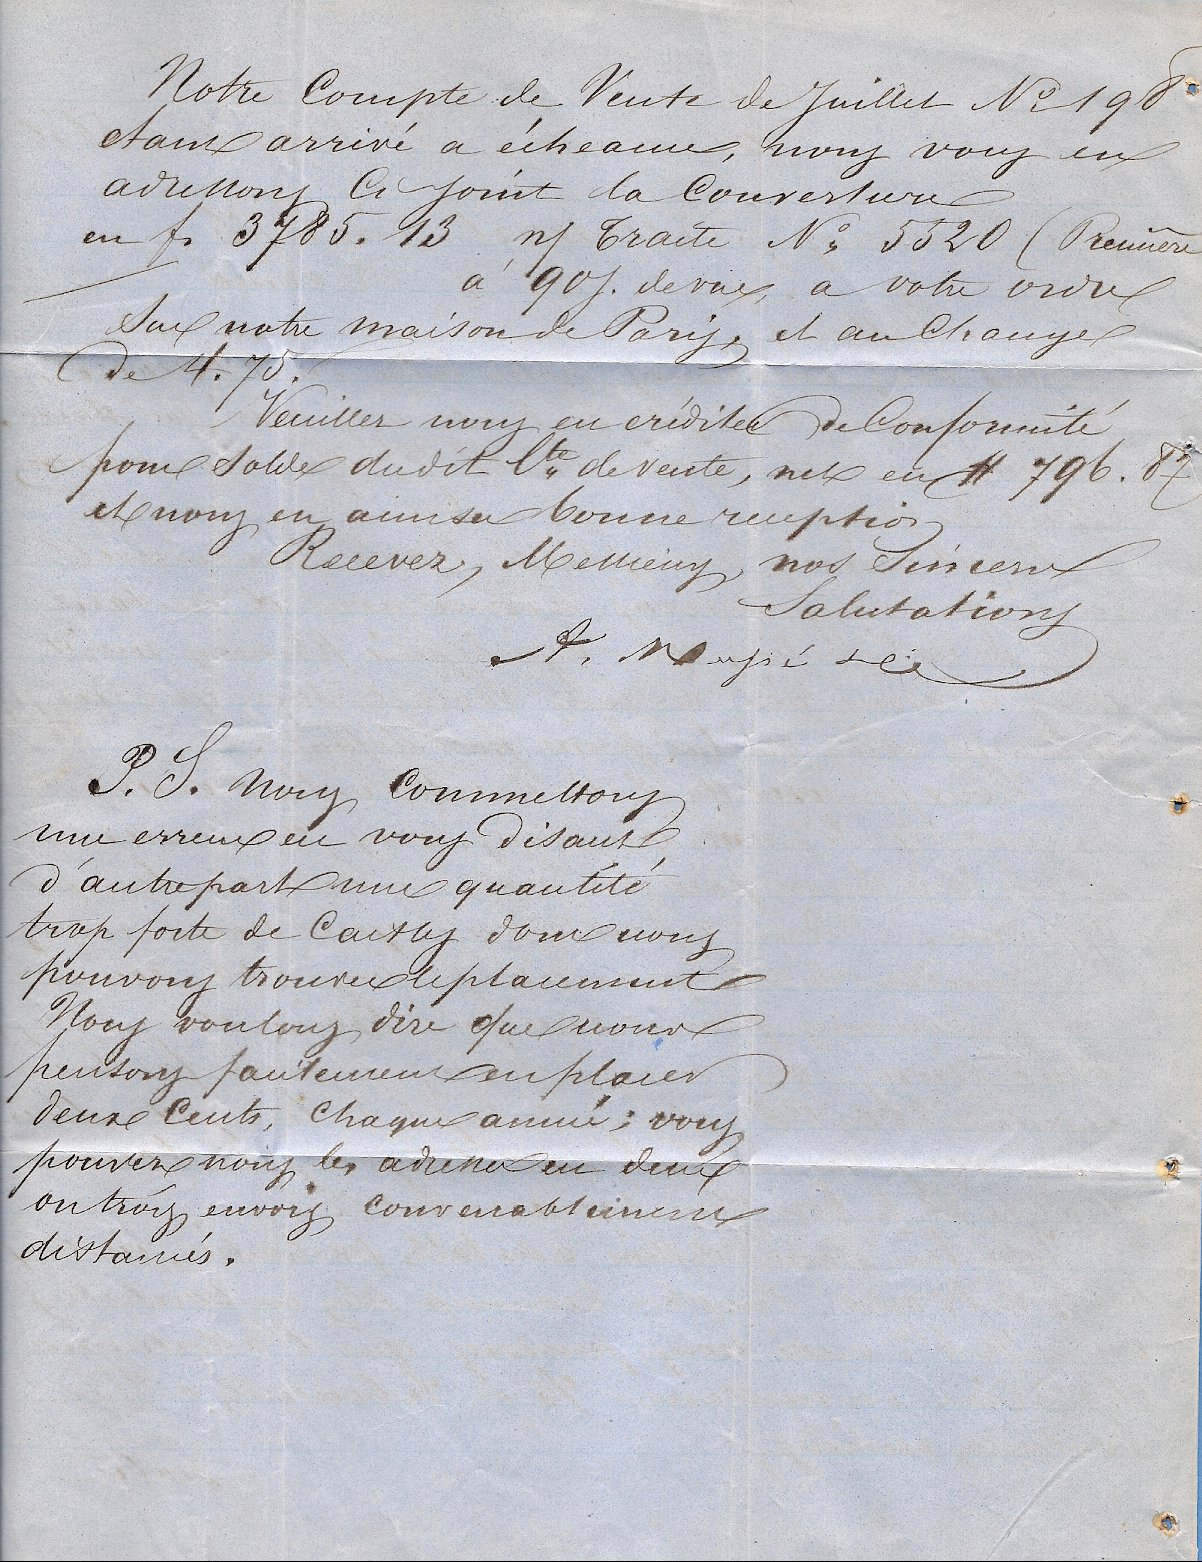 Notre Compte de Vente de Juillet No 198
étant arrivé a écheance, nous vous en
adressons Ci Joint la Couverture
en fr 3785.13 n/ Traite No 5520 (Première
à 90 j. de vue, a votre ordre
Sur notre maison de Paris, et au Change
de 4.75.
Veuillez nous en créditer de Conformité
pour Solde du dit Cte de vente, net en $ 796.87
et nous en aviser bonne reception
Recevez, Messieurs, nos Sinceres
Salutations
A. & Cie
P. S. Nous Commettons
une erreur en vous disant
d'autre part une quantité
trop forte de Caisses dont nous
pouvons trouver le placement
Nous voulons dire que nous
pensons facilement en placer
deux Cents, Chaque année; vous
pouvez nous les adresser en deux
ou trois envois convenablement
distancés.